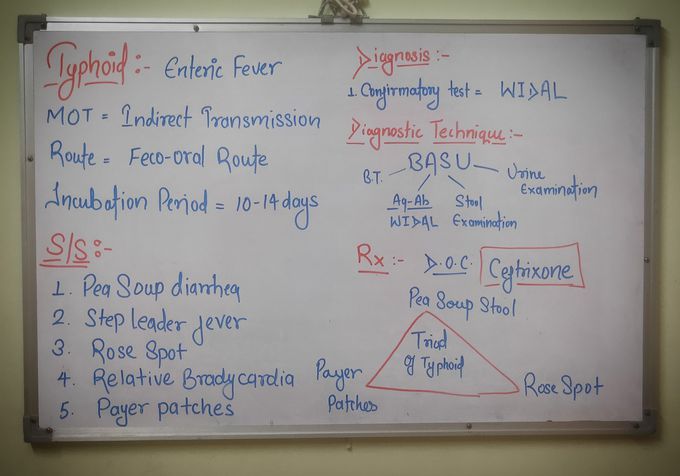 Typhoid :- Enteric Fever
MOT = Indirect Transmission
Route = Feco-oral Route
Incubation Period = 10-14 days
S/S :-
1. Pea Soup diarrhea
2. Step leader fever
3. Rose Spot
4. Relative Bradycardia
5. Payer patches
Diagnosis :-
1. Confirmatory test = WIDAL
Diagnostic Technique :-
BASU
B.T.
Ag-Ab
WIDAL
Stool
Examination
Urine
Examination
Rx :- D.O.C. Ceftrixone
Pea Soup Stool
Triad
of Typhoid
Payer
Patches
Rose Spot